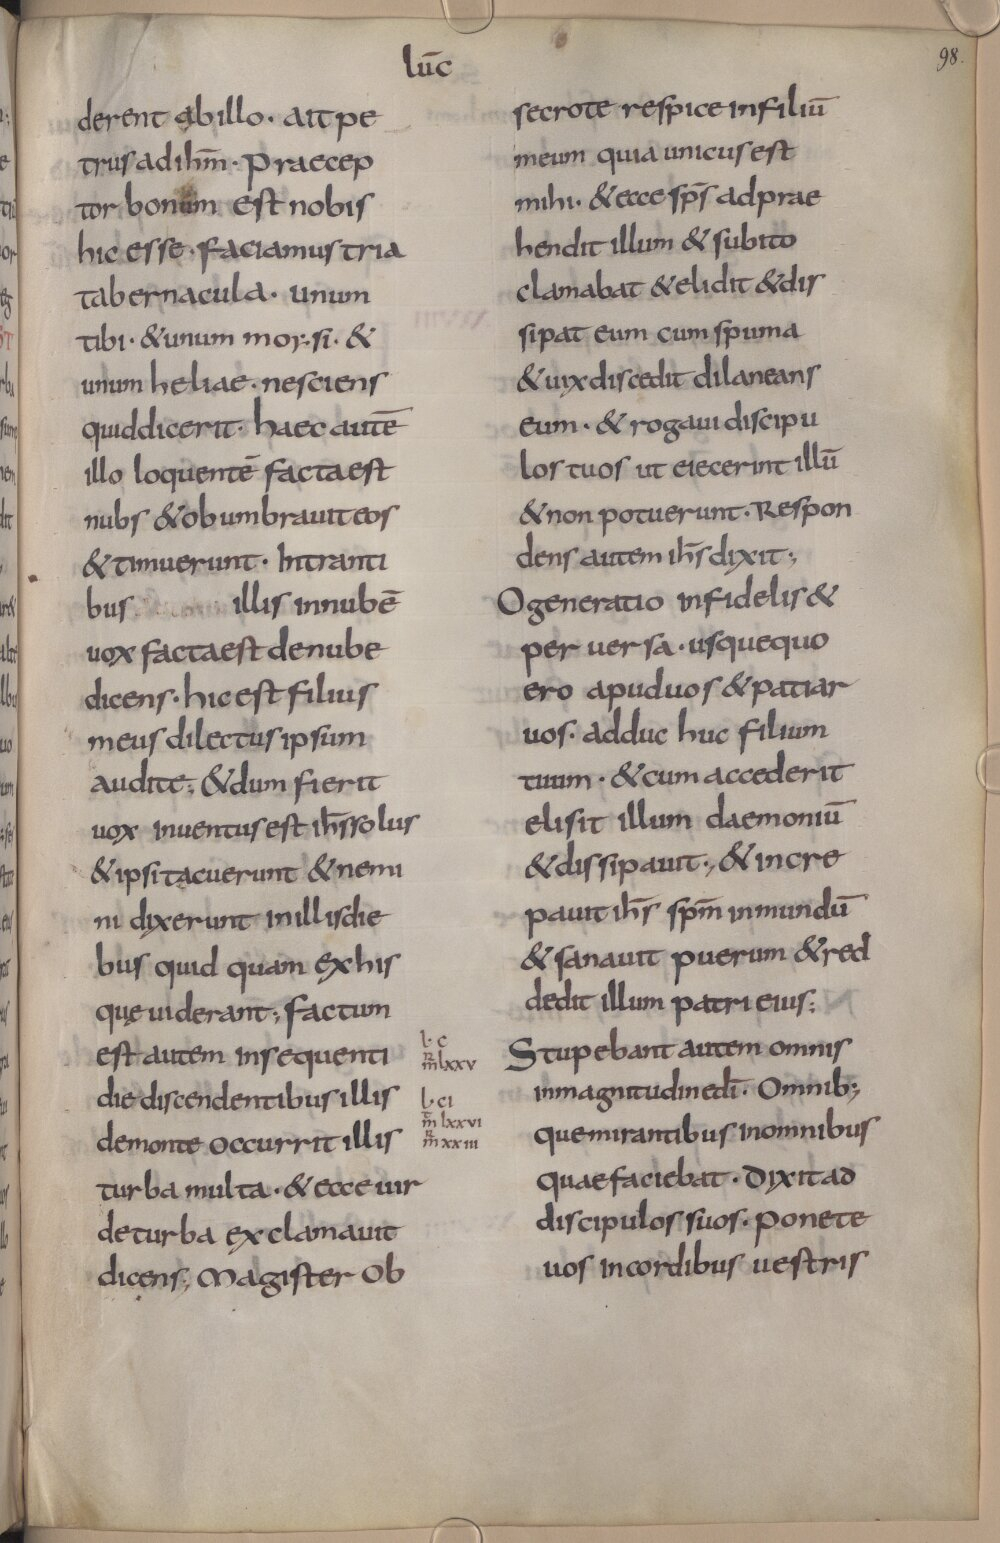 lūc
98.
derent abillo · ait pe
trus ad ihm̄ · Praecep
tor bonum est nobis
hic esse · faciamus tria
tabernacula · unum
tibi · & unum mor;si · &
unum heliae · nesciens
quid dicerit · haec autē
illo loquentē facta est
nubs & obumbrauit eos
& timuerunt · Intranti
bus illis in nubē
uox facta est de nube
dicens · hic est filius
meus dilectus ipsum
audite; & dum fierit
uox inuentus est ih̄s solus
& ipsi tacuerunt & nemi
ni dixerunt in illis die
bus quid quam ex his
quę uiderant; factum
est autem in sequenti
die discendentibus illis
de monte occurrit illis
turba multa · & ecce uir
de turba exclamauit
dicens; Magister ob
l · c
m̄ lxxv
l · ci
m̄ lxxvi
m̄ xxiii
secrote respice in filiū
meum quia unicus est
mihi · & ecce sp̄s adprae
hendit illum & subito
clamabat & elidit & dis
sipat eum cum spuma
& uix discedit dilaneans
eum · & rogaui discipu
los tuos ut eiecerint illū
& non potuerunt · Respon
dens autem ih̄s dixit;
O generatio infidelis &
peruersa · usquequo
ero apud uos & patiar
uos · adduc huc filium
tuum · & cum accederit
elisit illum daemoniū
& dissipauit; & incre
pauit ih̄s sp̄m inmundū
& sanauit puerum & red
dedit illum patri eius;
Stupebant autem omnis
in magnitudine dī · Omnib;
que mirantibus in omnibus
quae faciebat · Dixit ad
discipulos suos · Ponete
uos in cordibus uestris